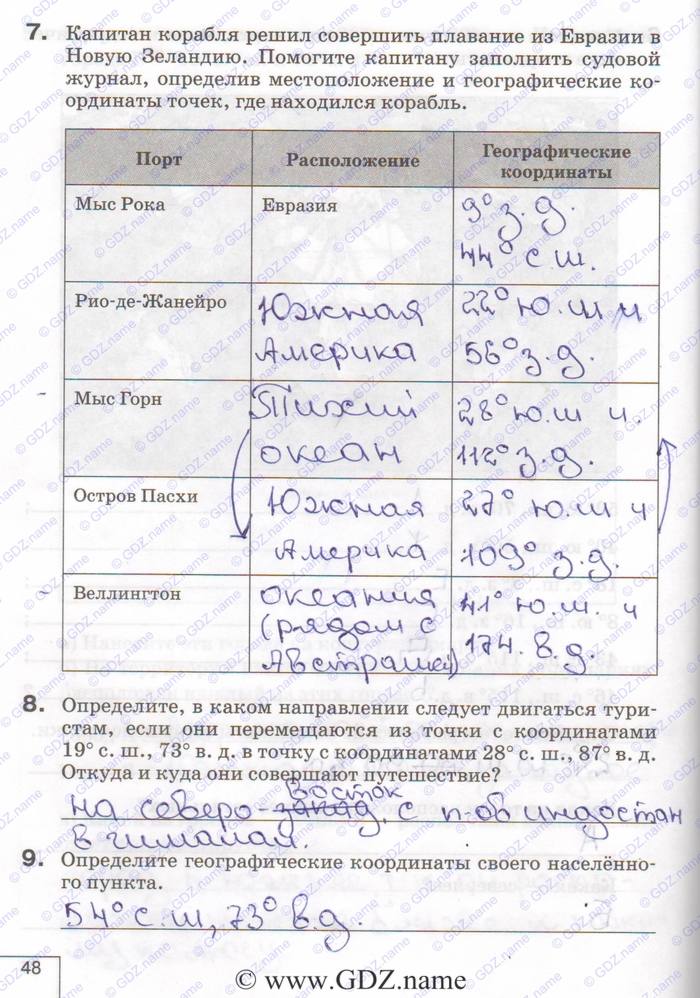 7. Капитан корабля решил совершить плавание из Евразии в
Новую Зеландию. Помогите капитану заполнить судовой
журнал, определив местоположение и географические ко-
ординаты точек, где находился корабль.
Порт Расположение Географические
координаты
Мыс Рока Евразия 9° з. д.
44° с. ш.
Рио-де-Жанейро Южная 22° ю. ш и
Америка 56° з. д.
Мыс Горн Тихий 28° ю. ш и.
океан 112° з. д.
Остров Пасхи Южная 27° ю. ш и
Америка 109° з. д.
Веллингтон океания 41° ю. ш. и
(рядом с 174. в. д.
Австралией)
8. Определите, в каком направлении следует двигаться тури-
стам, если они перемещаются из точки с координатами
19° с. ш., 73° в. д. в точку с координатами 28° с. ш., 87° в. д.
Откуда и куда они совершают путешествие?
восток
на северо-запад, с п-ов индостан
в гималаи.
9. Определите географические координаты своего населённо-
го пункта.
54° с. ш, 73° в.д.
48
© www.GDZ.name